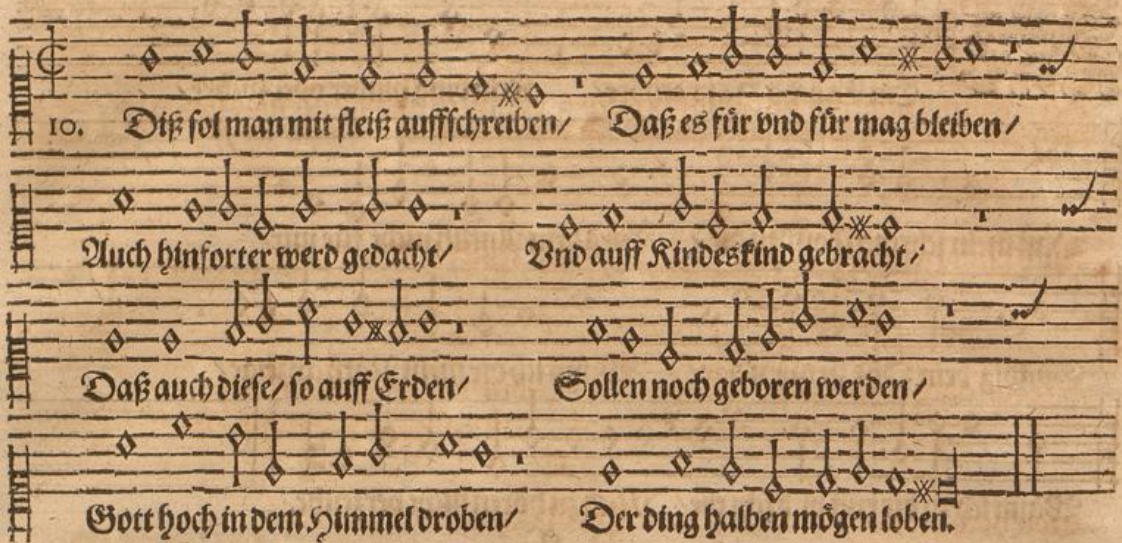 10. Diß sol man mit fleiß auffschreiben/ Daß es für vnd für mag bleiben/
Auch hinforter werd gedacht/ Vnd auff Kindeskind gebracht/
Daß auch diese/ so auff Erden/ Sollen noch geboren werden/
Gott hoch in dem Himmel droben/ Der ding halben mögen loben.